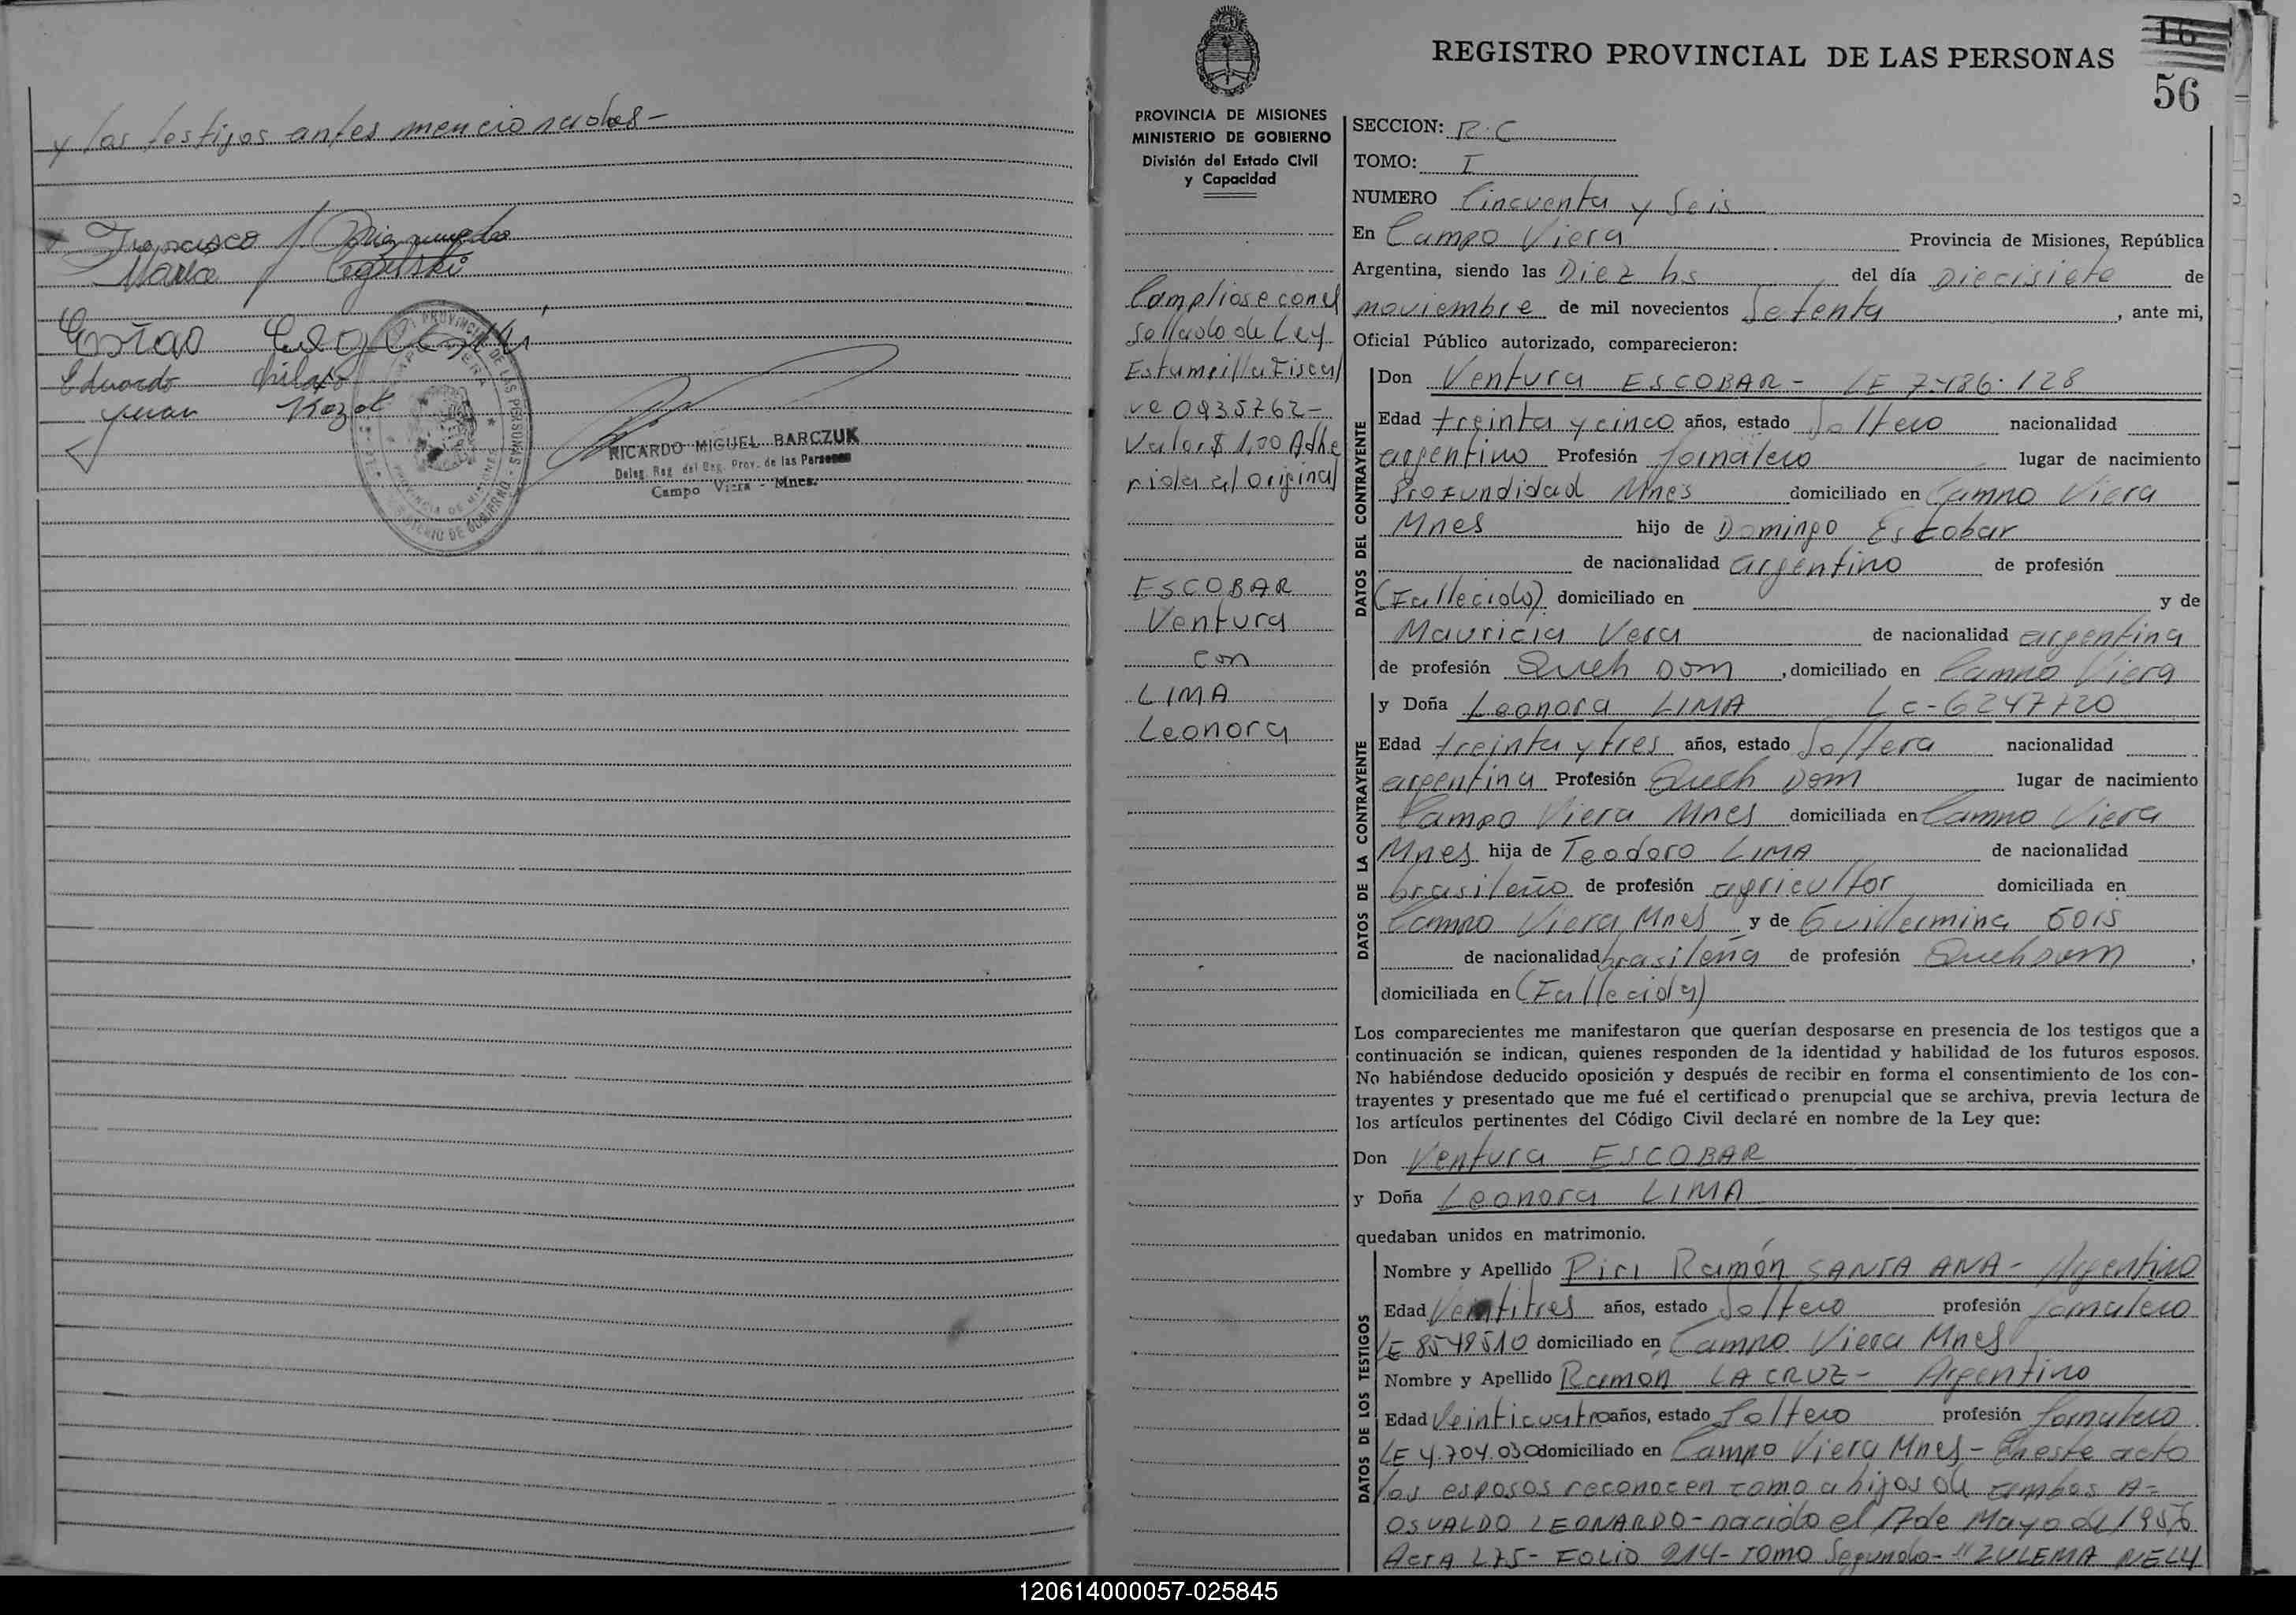 y los testigos antes mencionados-
Francisco J.
Maria Cegelski
Eduardo
Juan Kozak
RICARDO MIGUEL BARCZUK
Deleg. Reg. del Reg. Prov. de las Personas
Campo Viera - Mnes.
REGISTRO PROVINCIAL DE LAS PERSONAS
16
56
PROVINCIA DE MISIONES
MINISTERIO DE GOBIERNO
División del Estado Civil
y Capacidad
Campliose con el
Sellado de Ley
Estampilla Fiscal
Nº 0935762-
Valor $ 1,00 Adhe
rida al original
ESCOBAR
Ventura
con
LIMA
Leonora
SECCION: R.C
TOMO: I
NUMERO Cincuenta y Seis
En Campo Viera Provincia de Misiones, República
Argentina, siendo las Diez hs del día Diecisiete de
noviembre de mil novecientos Setenta, ante mi,
Oficial Público autorizado, comparecieron:
DATOS DEL CONTRAYENTE
Don Ventura ESCOBAR- LE 7486.128
Edad treinta y cinco años, estado Soltero nacionalidad
argentino Profesión Jornalero lugar de nacimiento
Profundidad Mnes domiciliado en Campo Viera
Mnes hijo de Domingo Escobar
de nacionalidad argentino de profesión
(Fallecido) domiciliado en y de
Mauricia Vera de nacionalidad argentina
de profesión Queh Dom, domiciliado en Campo Viera
DATOS DE LA CONTRAYENTE
y Doña Leonora LIMA LC-6247720
Edad treinta y tres años, estado Soltera nacionalidad
argentina Profesión Queh Dom lugar de nacimiento
Campo Viera Mnes domiciliada en Campo Viera
Mnes hija de Teodoro LIMA de nacionalidad
brasileño de profesión agricultor domiciliada en
Campo Viera Mnes y de Guillermina Gois
de nacionalidad brasileña de profesión Queh Dom,
domiciliada en (Fallecida)
Los comparecientes me manifestaron que querían desposarse en presencia de los testigos que a
continuación se indican, quienes responden de la identidad y habilidad de los futuros esposos.
No habiéndose deducido oposición y después de recibir en forma el consentimiento de los con-
trayentes y presentado que me fué el certificado prenupcial que se archiva, previa lectura de
los artículos pertinentes del Código Civil declaré en nombre de la Ley que:
Don Ventura ESCOBAR
y Doña Leonora LIMA
quedaban unidos en matrimonio.
DATOS DE LOS TESTIGOS
Nombre y Apellido Piri Ramón SANTA ANA- Argentino
Edad Veintitres años, estado Soltero profesión Jornalero
LE 8549510 domiciliado en Campo Viera Mnes
Nombre y Apellido Ramón LA CRUZ- Argentino
Edad Veinticuatro años, estado Soltero profesión Jornalero
LE 4.704.030 domiciliado en Campo Viera Mnes- En este acto
los esposos reconocen como a hijos de ambos A=
OSVALDO LEONARDO- nacido el 17 de Mayo de 1956
Acta 275- FOLIO 214- TOMO Segundo- "ZULEMA NELY
120614000057-025845